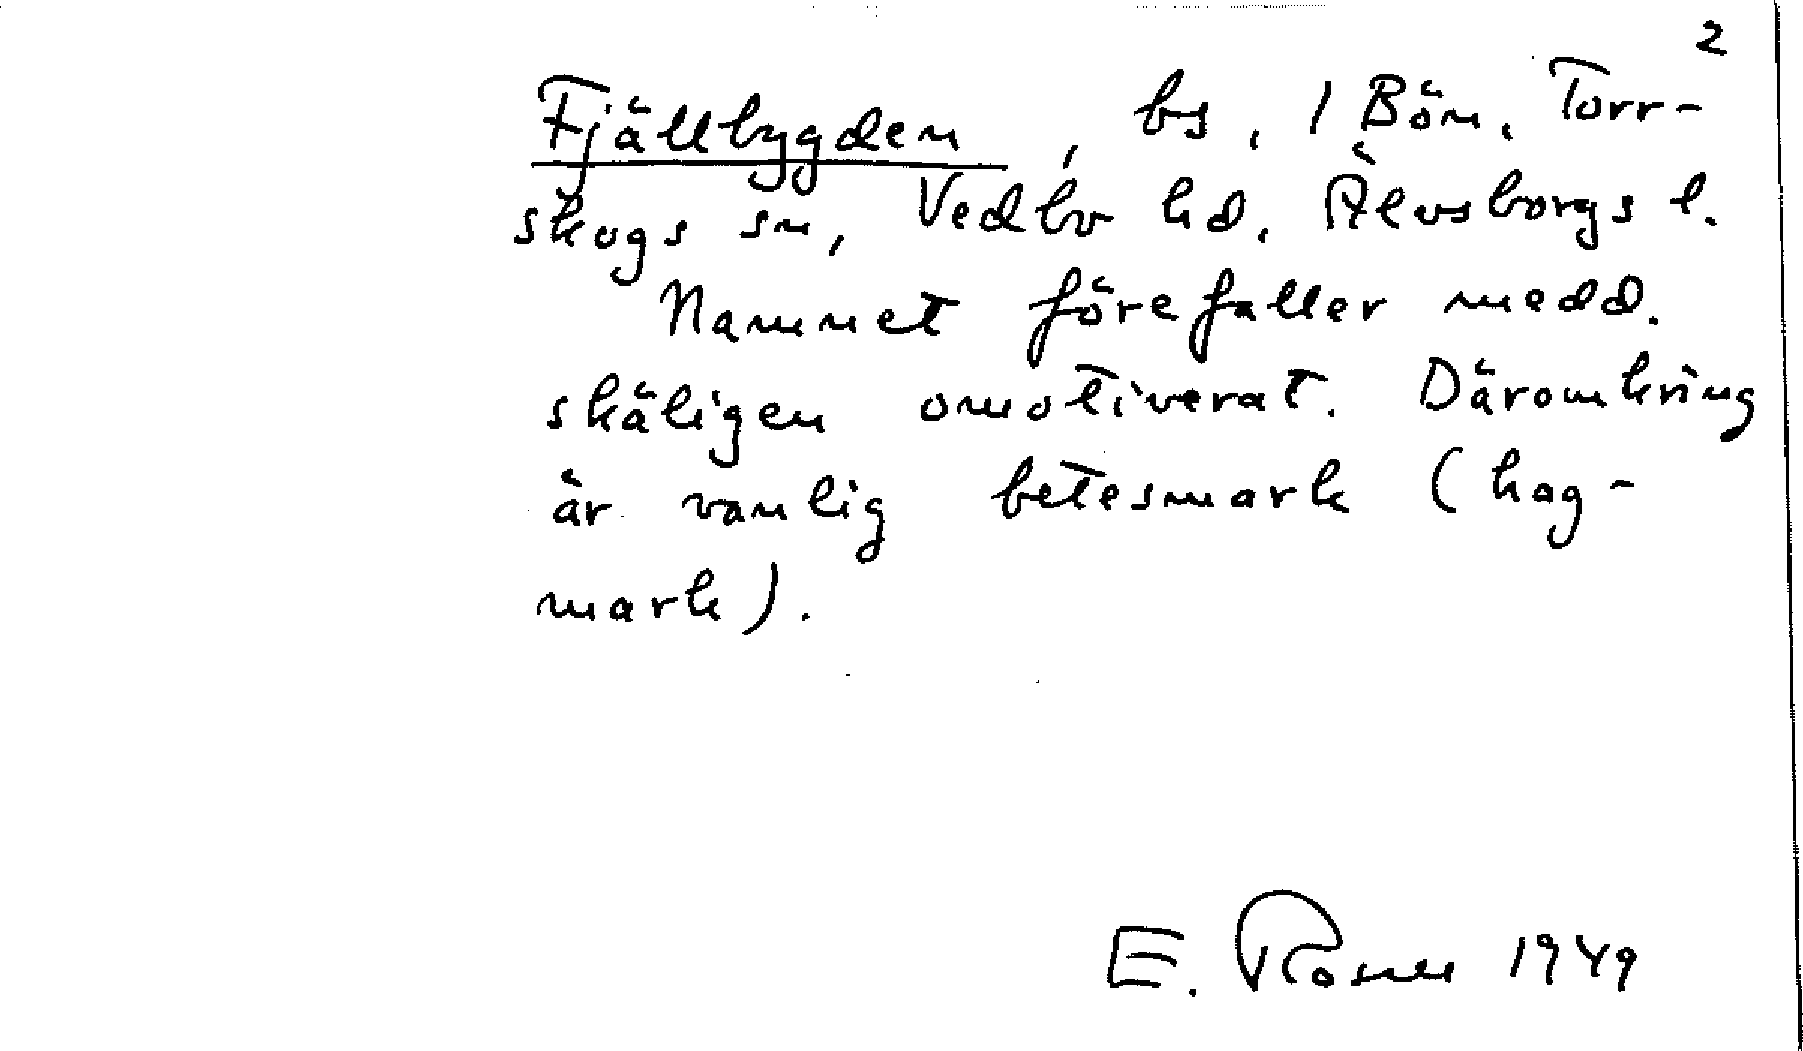 2
Fjällbygden, bs, 1 Bön, Torr-
skogs sn, Vedbo hd, Älvsborgs l.
Namnet förefaller medd.
skäligen omotiverat. Däromkring
är vanlig betesmark (hag-
mark).
E. Rosner 1949